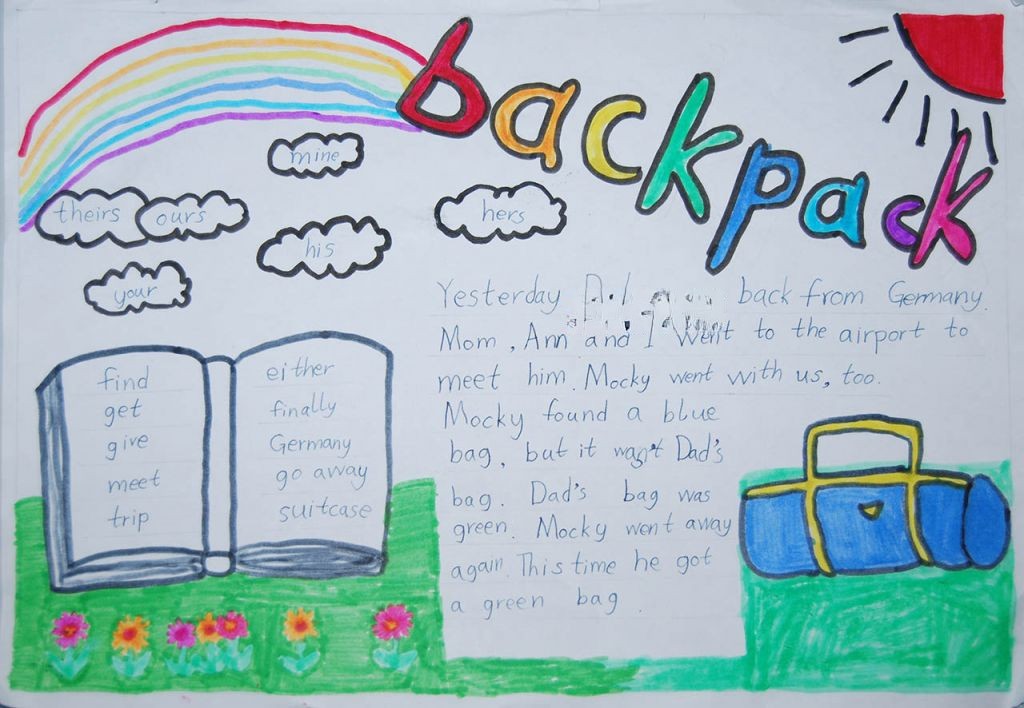 backpack
mine
theirs
ours
hers
his
your
Yesterday back from Germany.
Mom, Ann and I went to the airport to
meet him. Mocky went with us, too.
Mocky found a blue
bag, but it wasn't Dad's
bag. Dad's bag was
green. Mocky went away
again. This time he got
a green bag.
find
get
give
meet
trip
either
finally
Germany
go away
suitcase